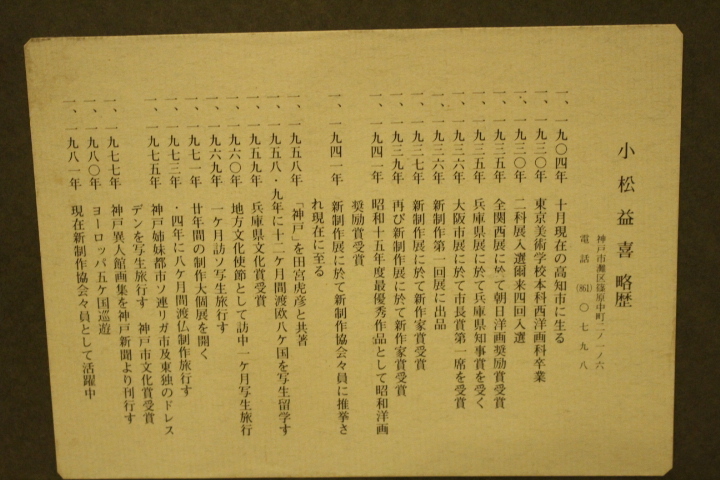 小松益喜 略歴
神戸市灘区篠原中町二ノ一ノ六
電話(861)〇七九八
一、一九〇四年 十月現在の高知市に生る
一、一九三〇年 東京美術学校本科西洋画科卒業
一、一九三〇年 二科展入選爾来四回入選
一、一九三五年 全関西展に於て朝日洋画奨励賞受賞
一、一九三五年 兵庫県展に於て兵庫県知事賞を受く
一、一九三六年 大阪市展に於て市長賞第一席を受賞
一、一九三六年 新制作第一回展に出品
一、一九三七年 新制作展に於て新作家賞受賞
一、一九三九年 再び新制作展に於て新作家賞受賞
一、一九四一年 昭和十五年度最優秀作品として昭和洋画
奨励賞受賞
一、一九四一年 新制作展に於て新制作協会々員に推挙さ
れ現在に至る
一、一九五八年 「神戸」を田宮虎彦と共著
一、一九五八・九年に十二ケ月間渡欧八ケ国を写生留学す
一、一九五九年 兵庫県文化賞受賞
一、一九六〇年 地方文化使節として訪中一ケ月写生旅行
一、一九六九年 一ケ月訪ソ写生旅行す
一、一九七一年 廿年間の制作大個展を開く
一、一九七三年・四年に八ケ月間渡仏制作旅行す
一、一九七五年 神戸姉妹都市ソ連リガ市及東独のドレス
デンを写生旅行す 神戸市文化賞受賞
一、一九七七年 神戸異人館画集を神戸新聞より刊行す
一、一九八〇年 ヨーロッパ五ケ国巡遊
一、一九八一年 現在新制作協会々員として活躍中